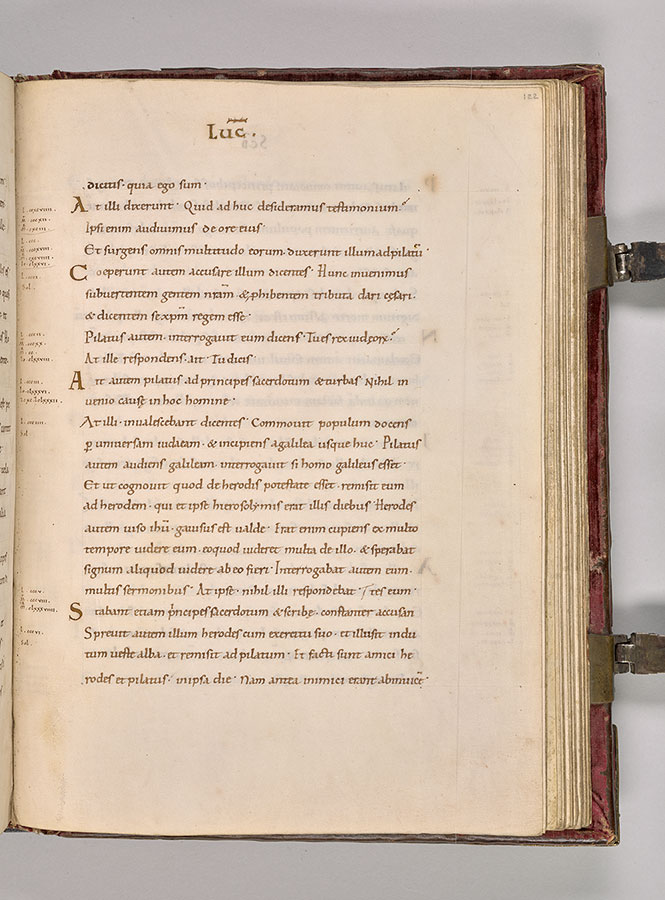 Luc̄.
dicitis· quia ego sum·
At illi dixerunt· Quid ad huc desideramus testimonium?
Ipsi enim audivimus de ore eius·
Et surgens omnis multitudo eorum· duxerunt illum ad pilatū·
Coeperunt autem accusare illum dicentes· Hunc invenimus
subvertentem gentem nr̄am· & ꝓhibentem tributa dari cesari·
& dicentem se xp̄m regem esse·
Pilatus autem· interrogavit eum dicens· Tu es rex iudęorꝝ?
At ille respondens· ait· Tu dicis·
Ait autem pilatus ad principes sacerdotum & turbas· Nihil in
venio causę in hoc homine·
At illi· invalescebant dicentes· Commovit populum docens
ꝑ universam iudaeam· & incipiens a galilea usque huc· Pilatus
autem audiens galileam· interrogavit si homo galileus esset·
Et ut cognovit quod de herodis potestate esset· remisit eum
ad herodem· qui et ipse hierosolymis erat illis diebus· Herodes
autem viso ihū· gavisus est valde· Erat enim cupiens ex multo
tempore videre eum· eo quod audiret multa de illo· & sperabat
signum aliquod videre ab eo fieri· Interrogabat autem eum·
multis sermonibus· At ipse· nihil illi respondebat·
Stabant etiam principes sacerdotum & scribe· constanter accusan
Sprevit autem illum herodes cum exercitu suo· et illusit indu
tum veste alba· et remisit ad pilatum· Et facti sunt amici he
rodes et pilatus· in ipsa die· Nam antea inimici erant ad invicē·